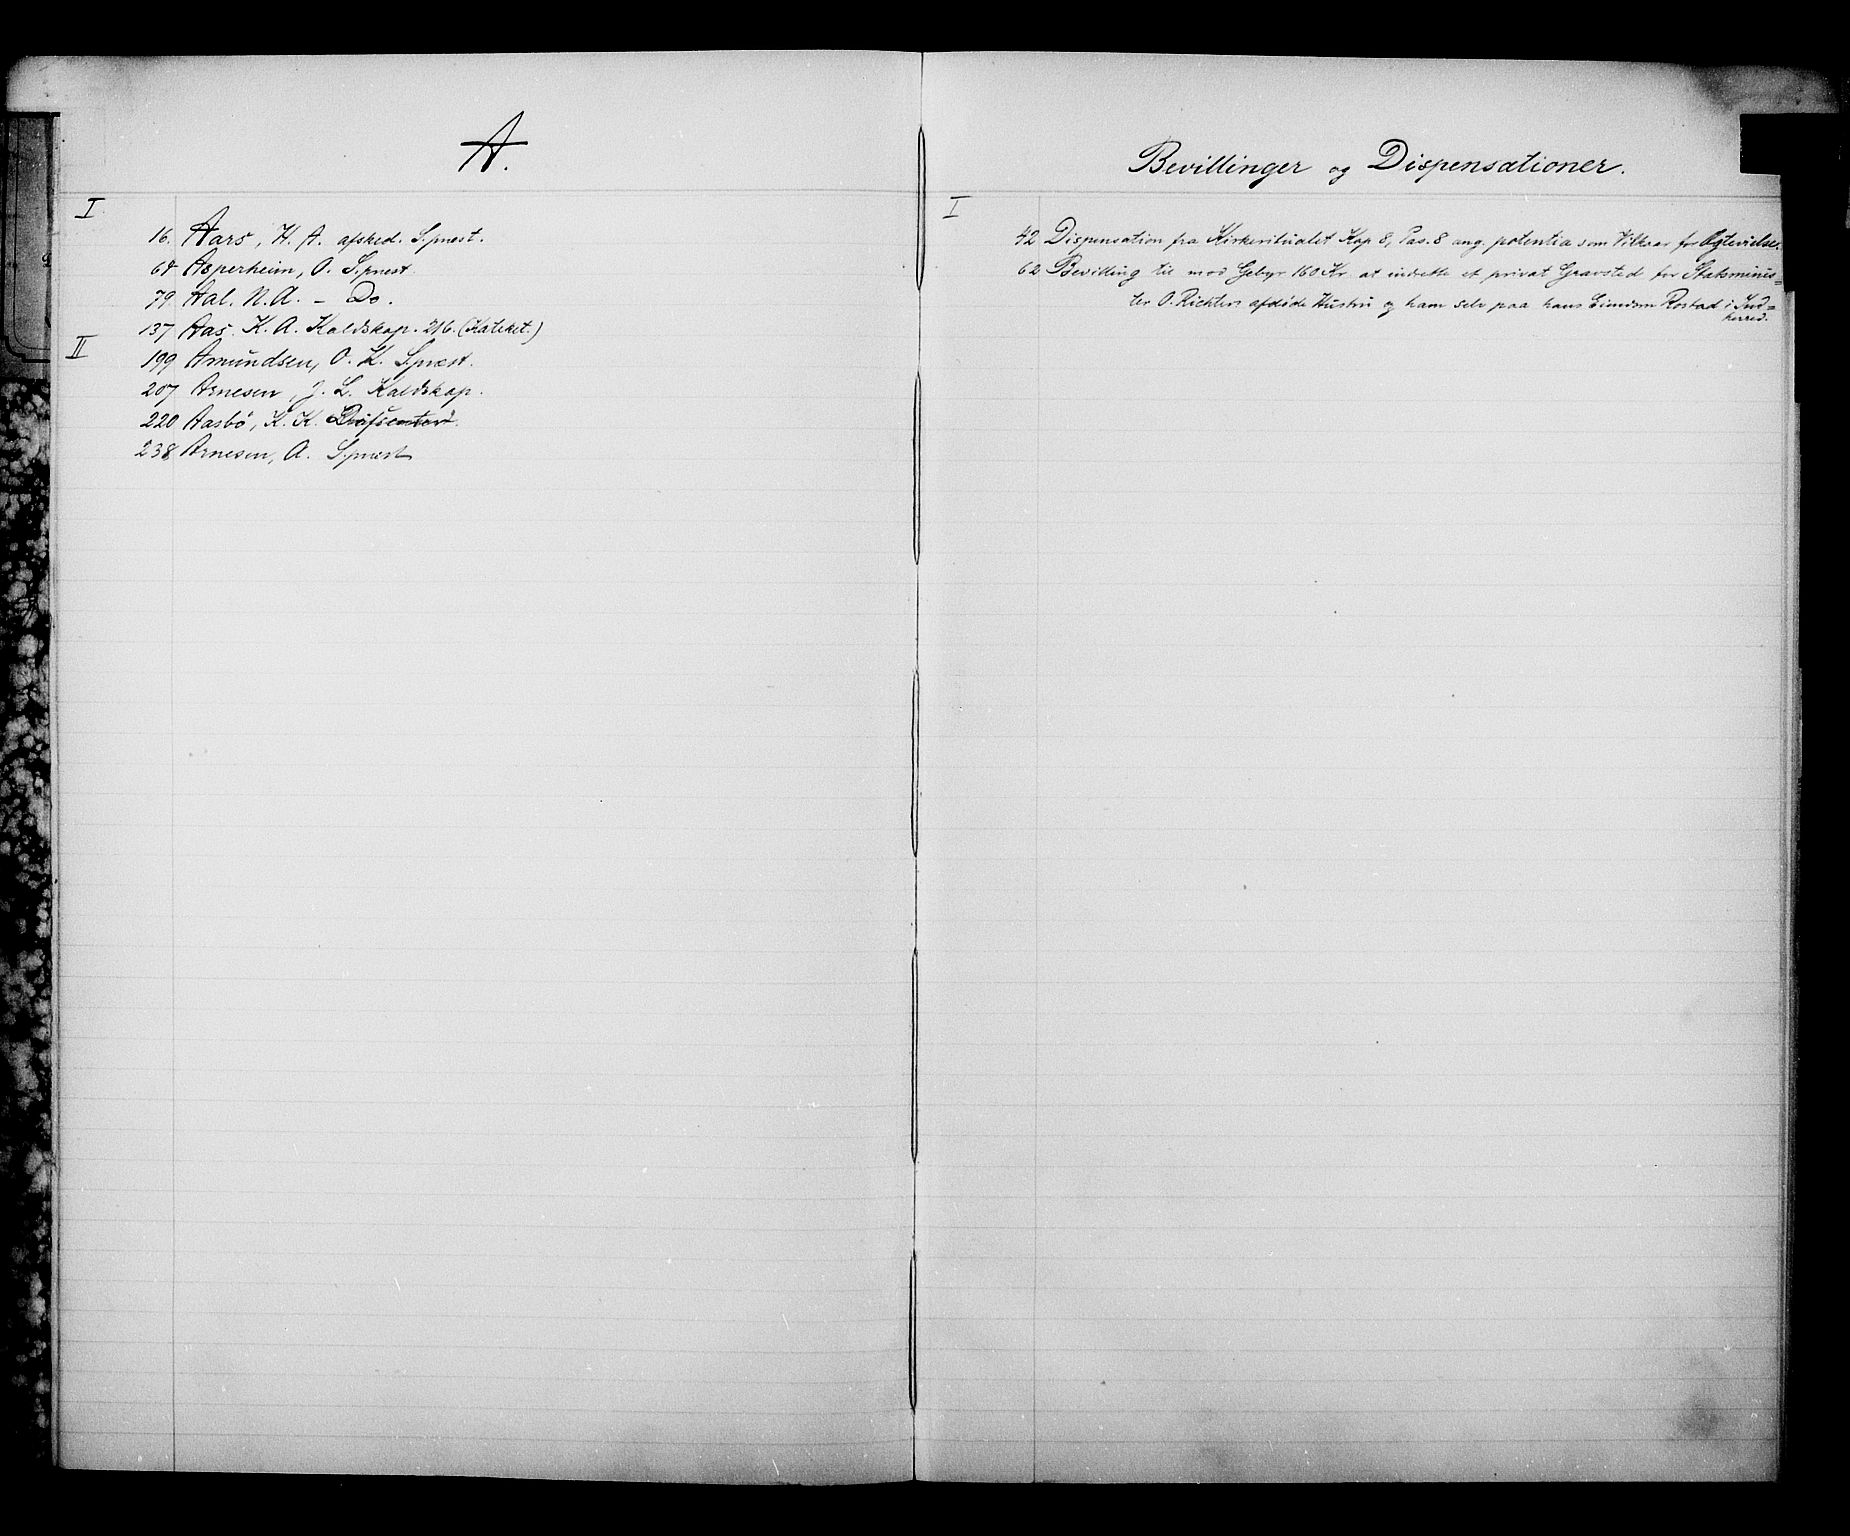 A.
I
16. Aars, H. A. afsked. S.prest.
64 Asperheim, O. S.prest.
79. Aal. N. A. - Do.
137 Aas. K. A. Kaldskap. 216. (Kateket.)
II
199 Amundsen, O. K. S.prest.
207 Arnesen, J. L. Kaldskap.
220 Aasbö, K. K.
238 Arnesen, A. S.prest
Bevillinger og Dispensationer.
I
42 Dispensation fra Kirkeritualet Kap 8, Pas. 8 ang. potentia som Vilkaar for Ægtevielse.
62 Bevilling til mod Gebyr 160 Kr. at indvie et privat Gravsted for Statsminis=
ter O. Richters afdöde Hustru og ham selv paa hans Eiendom Rostad i Ind=
herred.